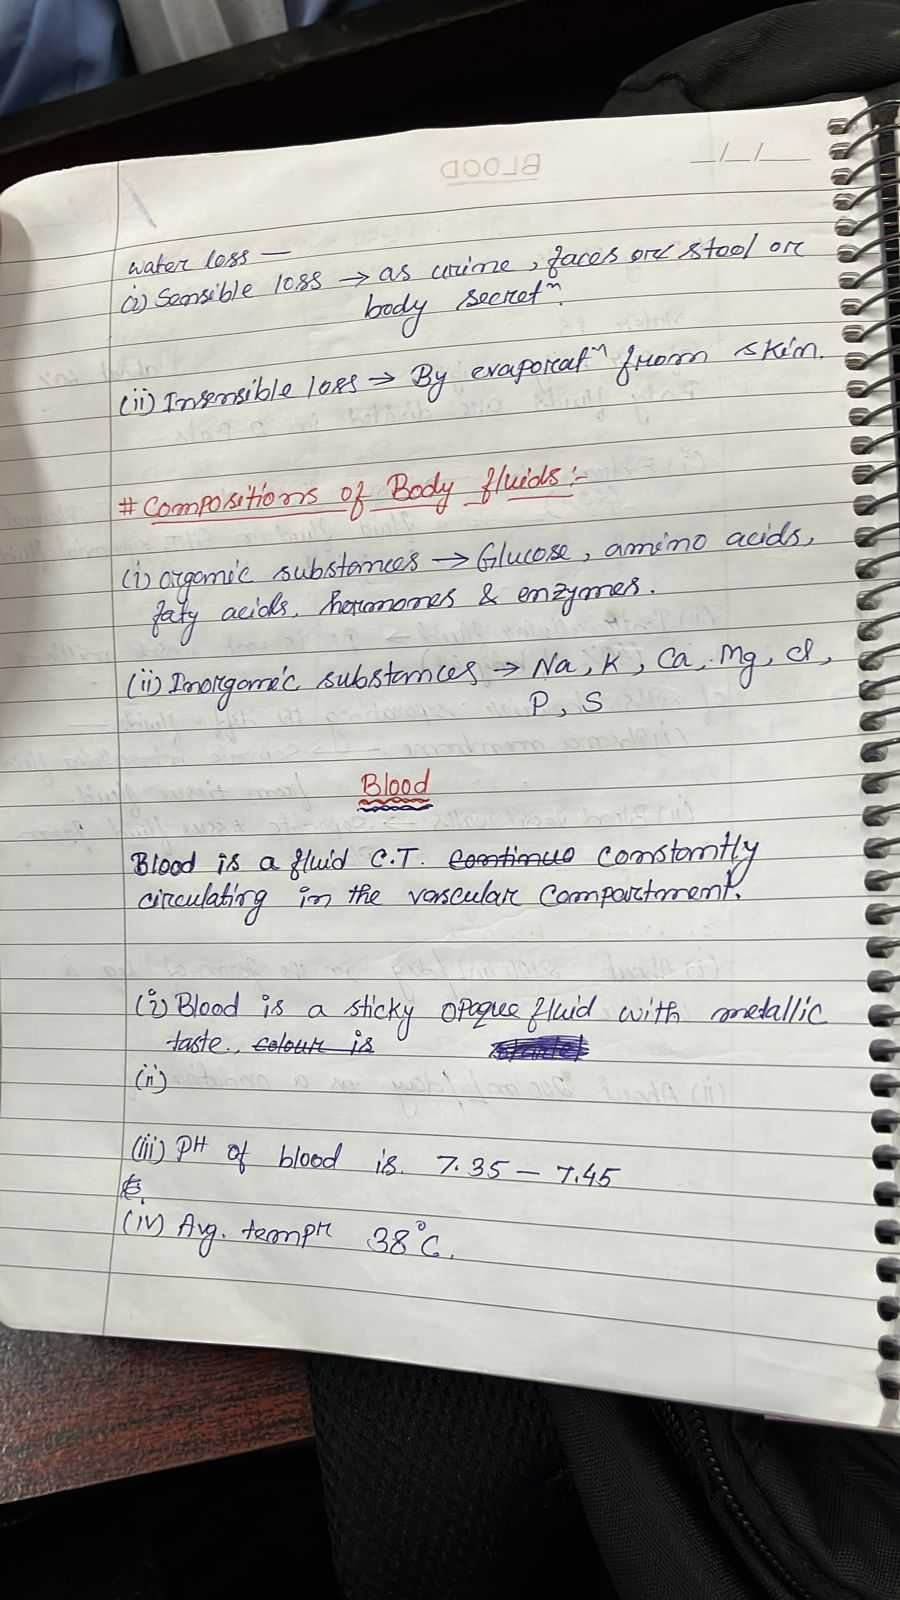 water loss —
(i) Sensible loss → as urine, faces or stool or
body secretⁿ.
(ii) Insensible loss → By evaporatⁿ from skin.
# Compositions of Body fluids :-
(i) organic substances → Glucose, amino acids,
faty acids, hormones & enzymes.
(ii) Inorganic substances → Na, K, Ca, Mg, cl,
P, S
Blood
Blood is a fluid C.T. continuo constantly
circulating in the vascular compartment.
(i) Blood is a sticky opaque fluid with metallic
taste., colour is
(ii)
(iii) PH of blood is. 7.35 – 7.45
(iv) Avg. tempr 38°C.